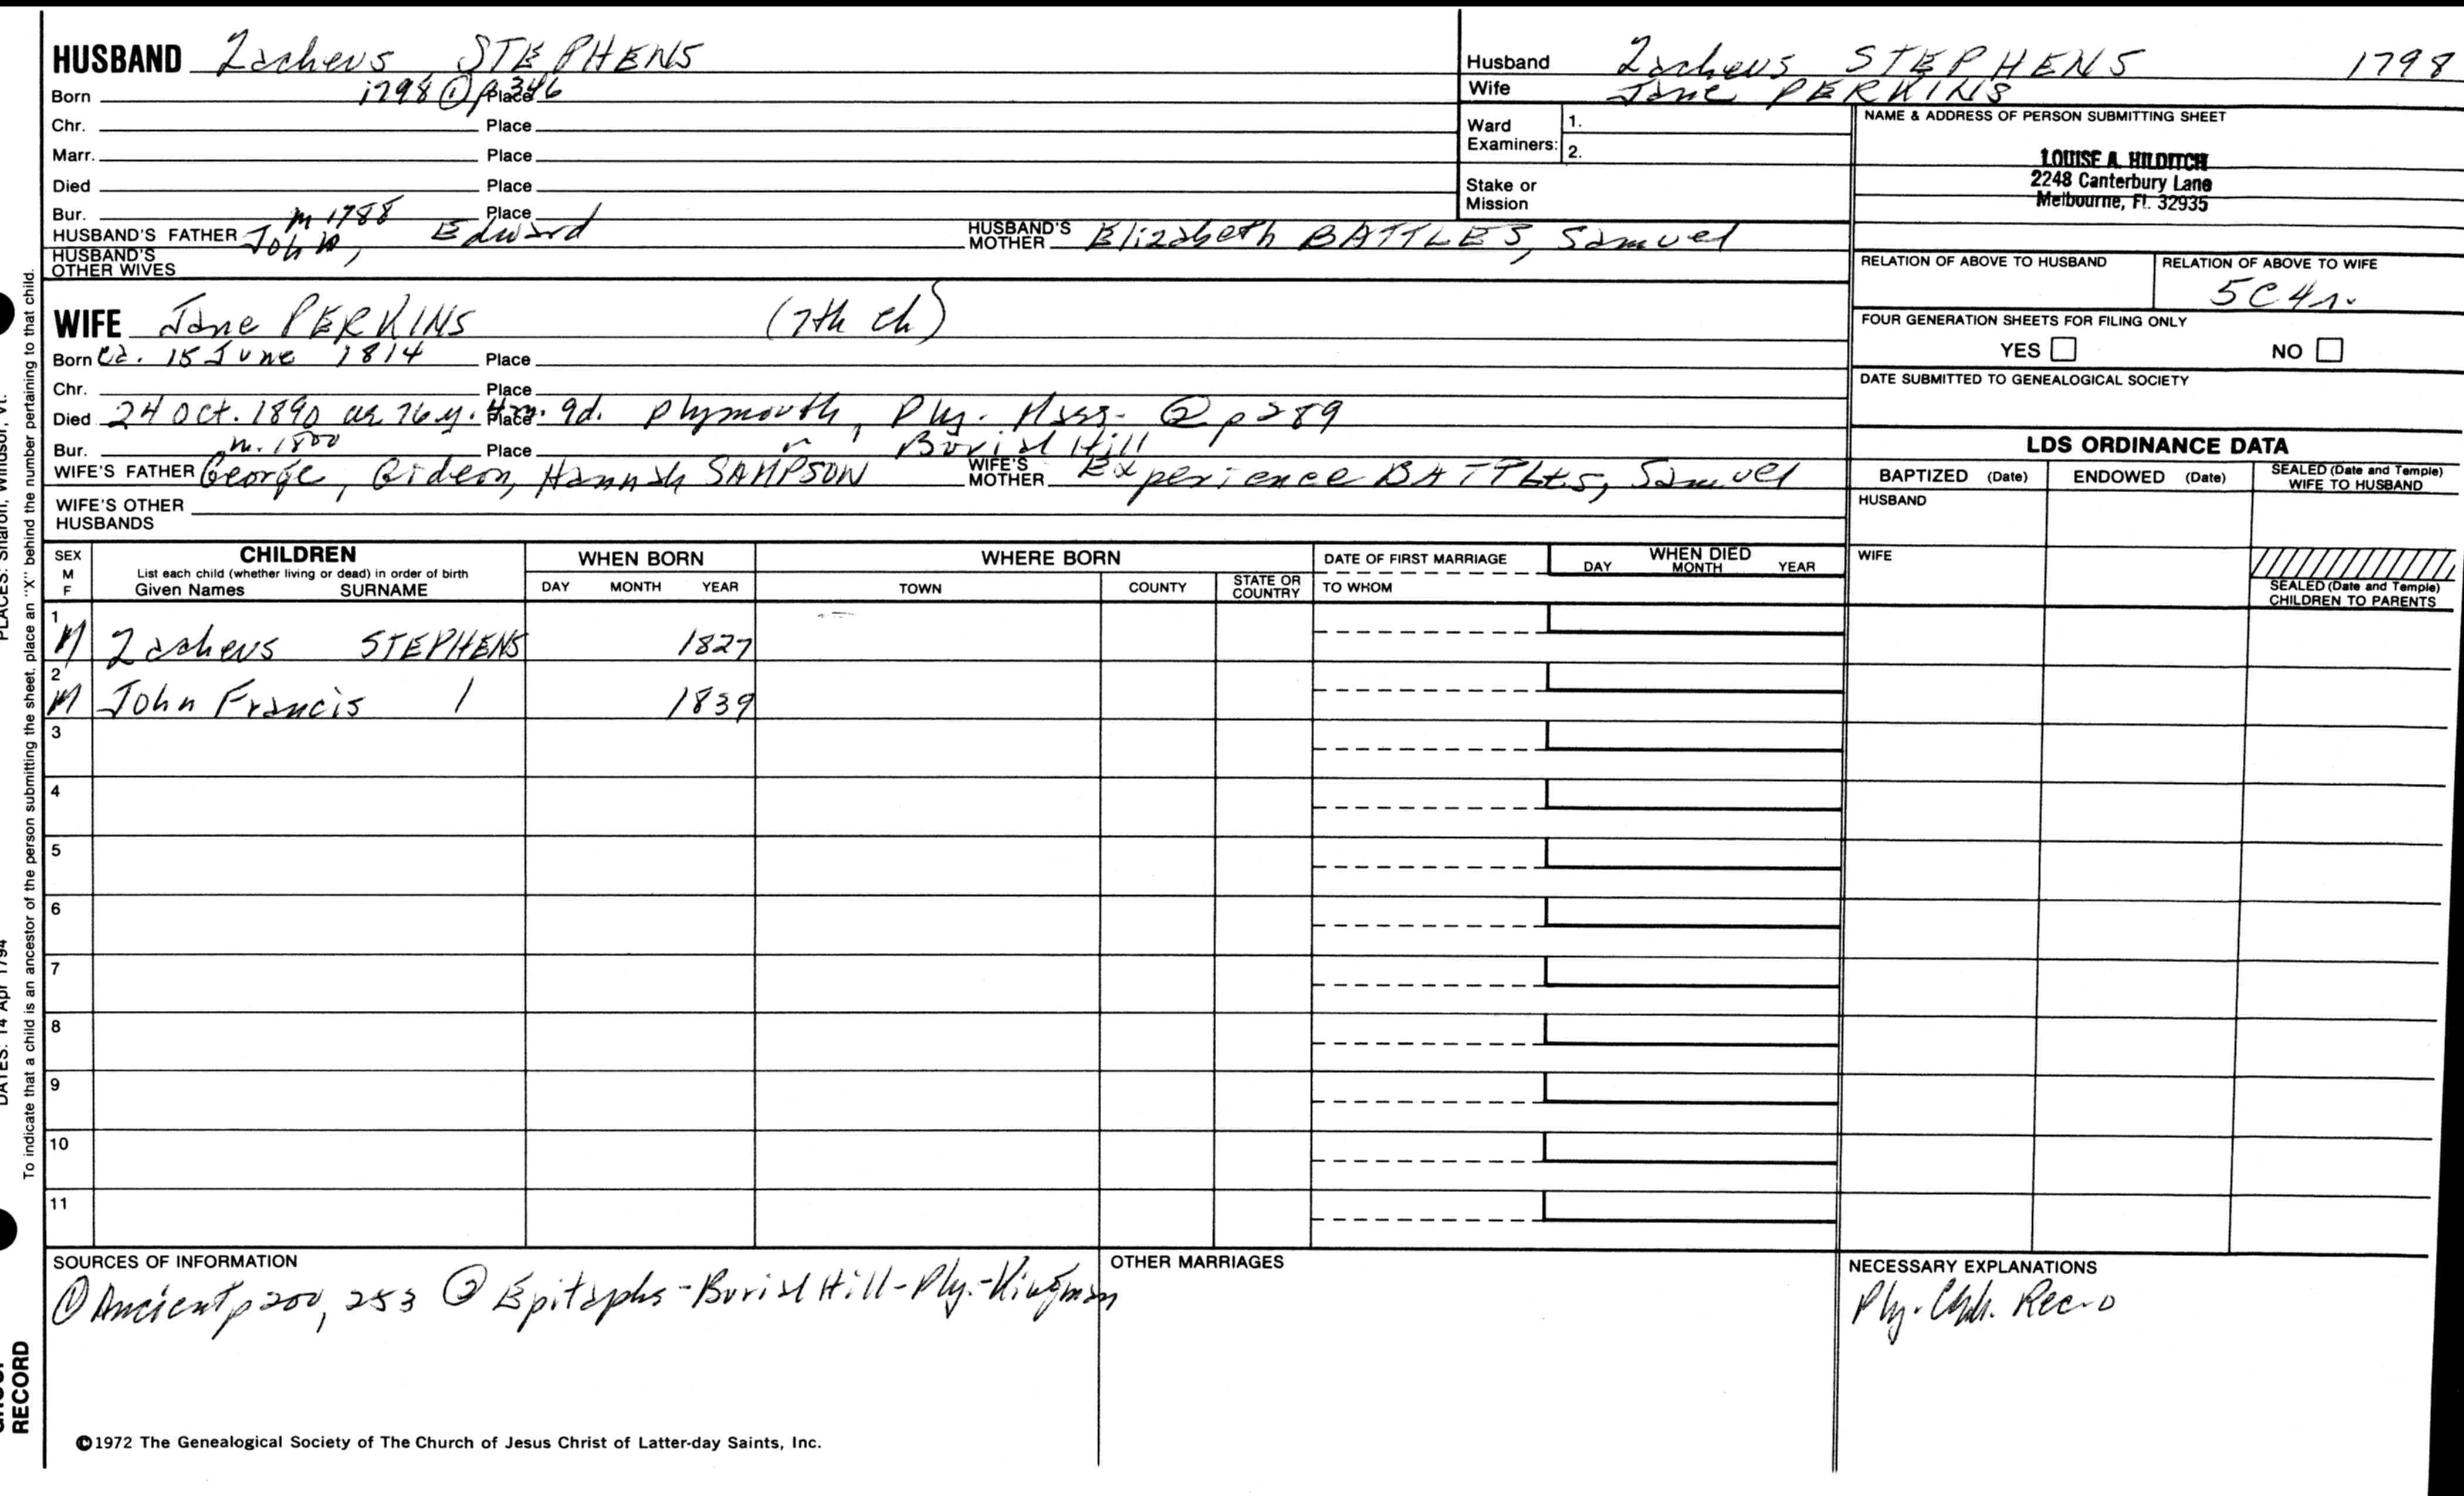 HUSBAND Zacheus STEPHENS
Born 1798 ① p 346 Place
Chr. Place
Marr. Place
Died Place
Bur. Place
m 1788
HUSBAND'S FATHER John, Edward HUSBAND'S MOTHER Elizabeth BATTLES, Samuel
HUSBAND'S OTHER WIVES
WIFE Jane PERKINS (7th ch)
Born ca. 15 June 1814 Place
Chr. Place
Died 24 Oct. 1890 ae 76y. 4m. 9d. Place Plymouth, Ply. Mass. ② p 289
Bur. Place " Burial Hill
m. 1800
WIFE'S FATHER George, Gideon, Hannah SAMPSON WIFE'S MOTHER Experience BATTLES, Samuel
WIFE'S OTHER HUSBANDS
Husband Zacheus STEPHENS 1798
Wife Jane PERKINS
Ward Examiners: 1.
2.
Stake or Mission
NAME & ADDRESS OF PERSON SUBMITTING SHEET
LOUISE A. HILDITCH
2248 Canterbury Lane
Melbourne, Fl. 32935
RELATION OF ABOVE TO HUSBAND RELATION OF ABOVE TO WIFE
5C4r.
FOUR GENERATION SHEETS FOR FILING ONLY
YES NO
DATE SUBMITTED TO GENEALOGICAL SOCIETY
LDS ORDINANCE DATA
BAPTIZED (Date) ENDOWED (Date) SEALED (Date and Temple) WIFE TO HUSBAND
HUSBAND
WIFE
SEALED (Date and Temple) CHILDREN TO PARENTS
SEX M F CHILDREN WHEN BORN WHERE BORN DATE OF FIRST MARRIAGE WHEN DIED
List each child (whether living or dead) in order of birth
Given Names SURNAME DAY MONTH YEAR TOWN COUNTY STATE OR COUNTRY TO WHOM DAY MONTH YEAR
1 M Zacheus STEPHENS 1827
2 M John Francis / 1839
3
4
5
6
7
8
9
10
11
SOURCES OF INFORMATION
① Ancient p 200, 253 ② Epitaphs-Burial Hill-Ply.-Kingman
OTHER MARRIAGES
NECESSARY EXPLANATIONS
Ply. Chh. Rec-0
©1972 The Genealogical Society of The Church of Jesus Christ of Latter-day Saints, Inc.
PLACES: Sharon, Windsor, Vt.
DATES: 14 Apr 1794
To indicate that a child is an ancestor of the person submitting the sheet, place an "X" behind the number pertaining to that child.
RECORD